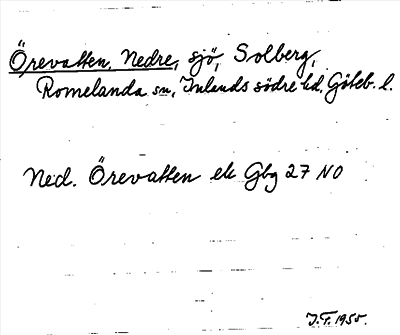 Örevatten, Nedre, sjö, Solberg,
Romelanda sn, Inlands södre hd. Göteb. l.
Ned. Örevatten ek Gbg 27 NO
J.T. 1950.